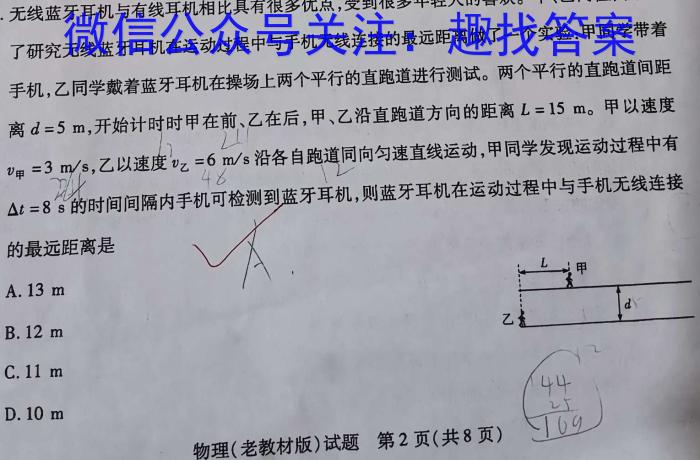 . 无线蓝牙耳机与有线耳机相比具有很多优点,受到很多年轻人的喜欢。
微信公众号关注:趣找答案
了研究无线蓝牙耳机在运动过程中与手机无线连接的最远距离做了一个实验,甲同学带着
手机,乙同学戴着蓝牙耳机在操场上两个平行的直跑道进行测试。两个平行的直跑道间距
离 d=5 m,开始计时时甲在前、乙在后,甲、乙沿直跑道方向的距离 L=15 m。甲以速度
v甲=3 m/s,乙以速度 v乙=6 m/s 沿各自跑道同向匀速直线运动,甲同学发现运动过程中有
Δt=8 s 的时间间隔内手机可检测到蓝牙耳机,则蓝牙耳机在运动过程中与手机无线连接
的最远距离是
A
A. 13 m
B. 12 m
C. 11 m
D. 10 m
L
甲
d
乙
48
12
44
25
169
物理(老教材版)试题 第2页(共8页)